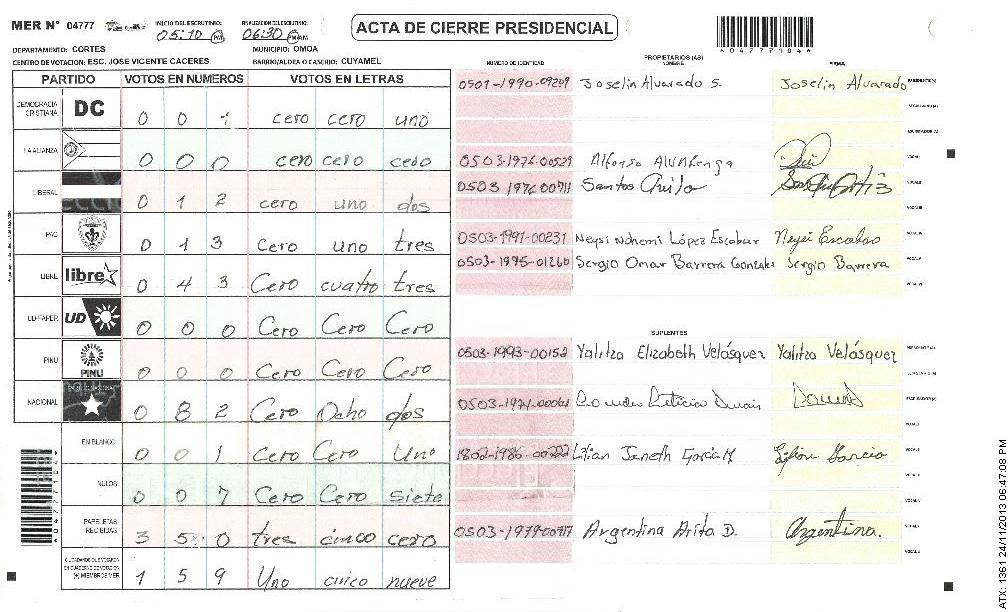 MER N° 04777 INICIO DEL ESCRUTINIO: 05:10 PM FINALIZACION DEL ESCRUTINIO: 06:30 PM AM ACTA DE CIERRE PRESIDENCIAL
*04777104*
DEPARTAMENTO: CORTES MUNICIPIO: OMOA
CENTRO DE VOTACION: ESC. JOSE VICENTE CACERES BARRIO/ALDEA O CASERIO: CUYAMEL
PARTIDO VOTOS EN NUMEROS VOTOS EN LETRAS
DEMOCRACIA CRISTIANA DC 0 0 1 cero cero uno
FAALIANZA 0 0 0 cero cero cero
LIBERAL 0 1 2 cero uno dos
PAC 0 1 3 Cero uno tres
LIBRE libre 0 4 3 Cero cuatro tres
UD-FAPER UD 0 0 0 Cero Cero Cero
PINU PINU 0 0 0 Cero Cero Cero
NACIONAL 0 8 2 Cero Ocho dos
EN BLANCO 0 0 1 Cero Cero Uno
NULOS 0 0 7 Cero Cero siete
PAPELETAS RECIBIDAS 3 5 0 tres cinco cero
(+) MIEMBROS MER 1 5 9 Uno cinco nueve
PROPIETARIOS (AS)
NUMERO DE IDENTIDAD NOMBRE FIRMA
0501-1990-09209 Joselin Alvarado S. Joselin Alvarado PRESIDENTE(A)
SECRETARIO(A)
ESCRUTADOR(A)
0503-1976-00529 Alfonso VOCAL I
0503 1976 00711 Santos VOCAL II
VOCAL III
0503-1991-00231 Neysi Nohemi López Escobar Neysi Escobar VOCAL IV
0503-1995-01260 Sergio Omar Barrera Gonzales Sergio Barrera VOCAL V
VOCAL VI
SUPLENTES
0503-1993-00152 Yalitza Elizabeth Velásquez Yalitza Velásquez PRESIDENTE(A)
SECRETARIO(A)
0503-1971-00061 Leticia ESCRUTADOR(A)
VOCAL I
1802-1986-00222 Lilian Janeth Garcia M Lilian Garcia VOCAL II
VOCAL III
VOCAL IV
0503-1979-00717 Argentina Arita D. Argentina. VOCAL V
VOCAL VI
ATX: 1361 24/11/2013 06:47:08 PM